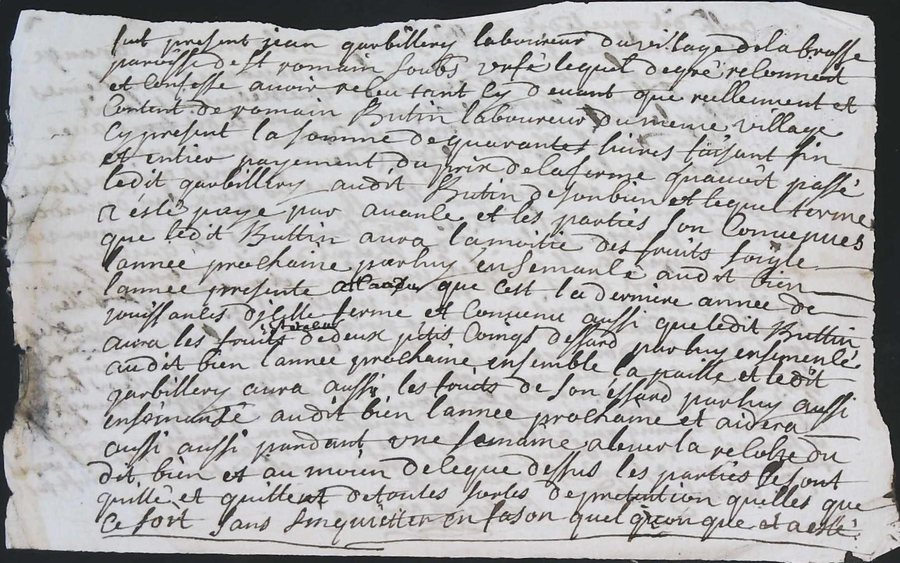 fut present jean garbillery laboureur du village de la brosse
paroisse de st romain soubs urfé lequel de gré reconnoit
et confesse avoir receu tant cy devant que reellement et
contant de romain Butin laboureur du meme village
cy present la somme de quarantes livres faisant fin
et entier payement du prix de la ferme quavoit passé
ledit garbillery audit Butin de son bien et lequel terme
a esté payé par avance et les parties son convenues
que ledit Buttin aura la moitié des fruits soigle
lannée prochaine par luy ensemancé audit bien
lannée presente que cest la derniere année de
jouissances de cette ferme et convenu aussi que ledit Buttin
aura les fruits de deux petis coings dessard par luy ensemencé
audit bien lannée prochaine ensemble la paille et ledit
garbillery aura aussi les fruits de son essard par luy aussi
ensemancé audit bien lannée prochaine et aidera
aussi aussi pandant une semaine a lever la recolte du
dit bien et au moien de ceque dessus les parties se sont
quitté et quittent de toutes sortes de pretantion quelles que
ce soit sans sinquietter en fason quelconque et a esté